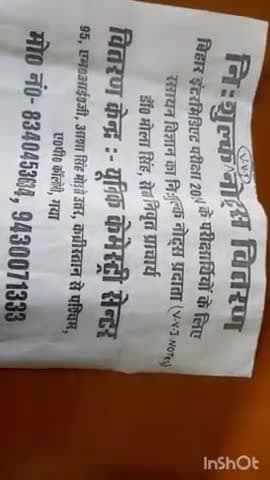 (V.V.I)
नि:शुल्क नोट्स वितरण
बिहार इंटरमिडिएट परीक्षा 20 के परीक्षार्थियों के लिए
रसायन विज्ञान का निःशुल्क नोट्स प्रदाता (V.V.I.NOTES)
डॉ० भोला सिंह, सेवा निवृत प्राचार्य
वितरण केन्द्र :- यूनिक केमेस्ट्री सेन्टर
95, एम०आई०जी०, सिंह कब्रिस्तान से पश्चिम,
ए०पी० कॉलोनी गया
मो० नं०- 8340453, 9430071333
InShOt